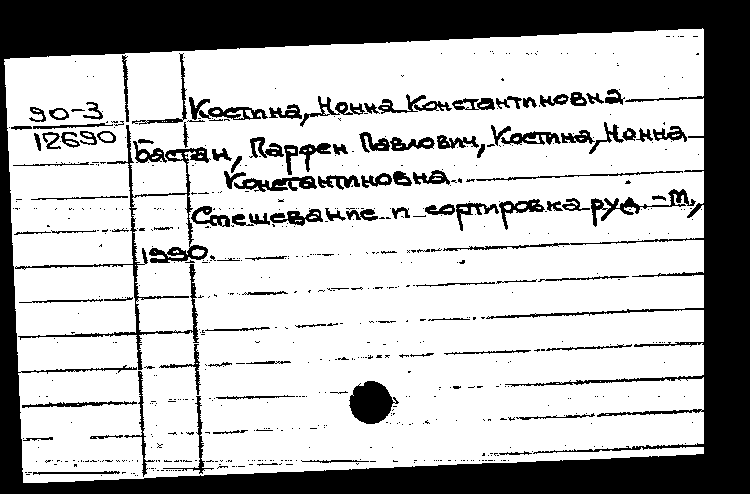 90-3
12690
Костина, Нонна Константиновна
Бастан, Парфен Павлович, Костина, Нонна
Константиновна.
Смешевание и сортировка руд. - М.,
1990.